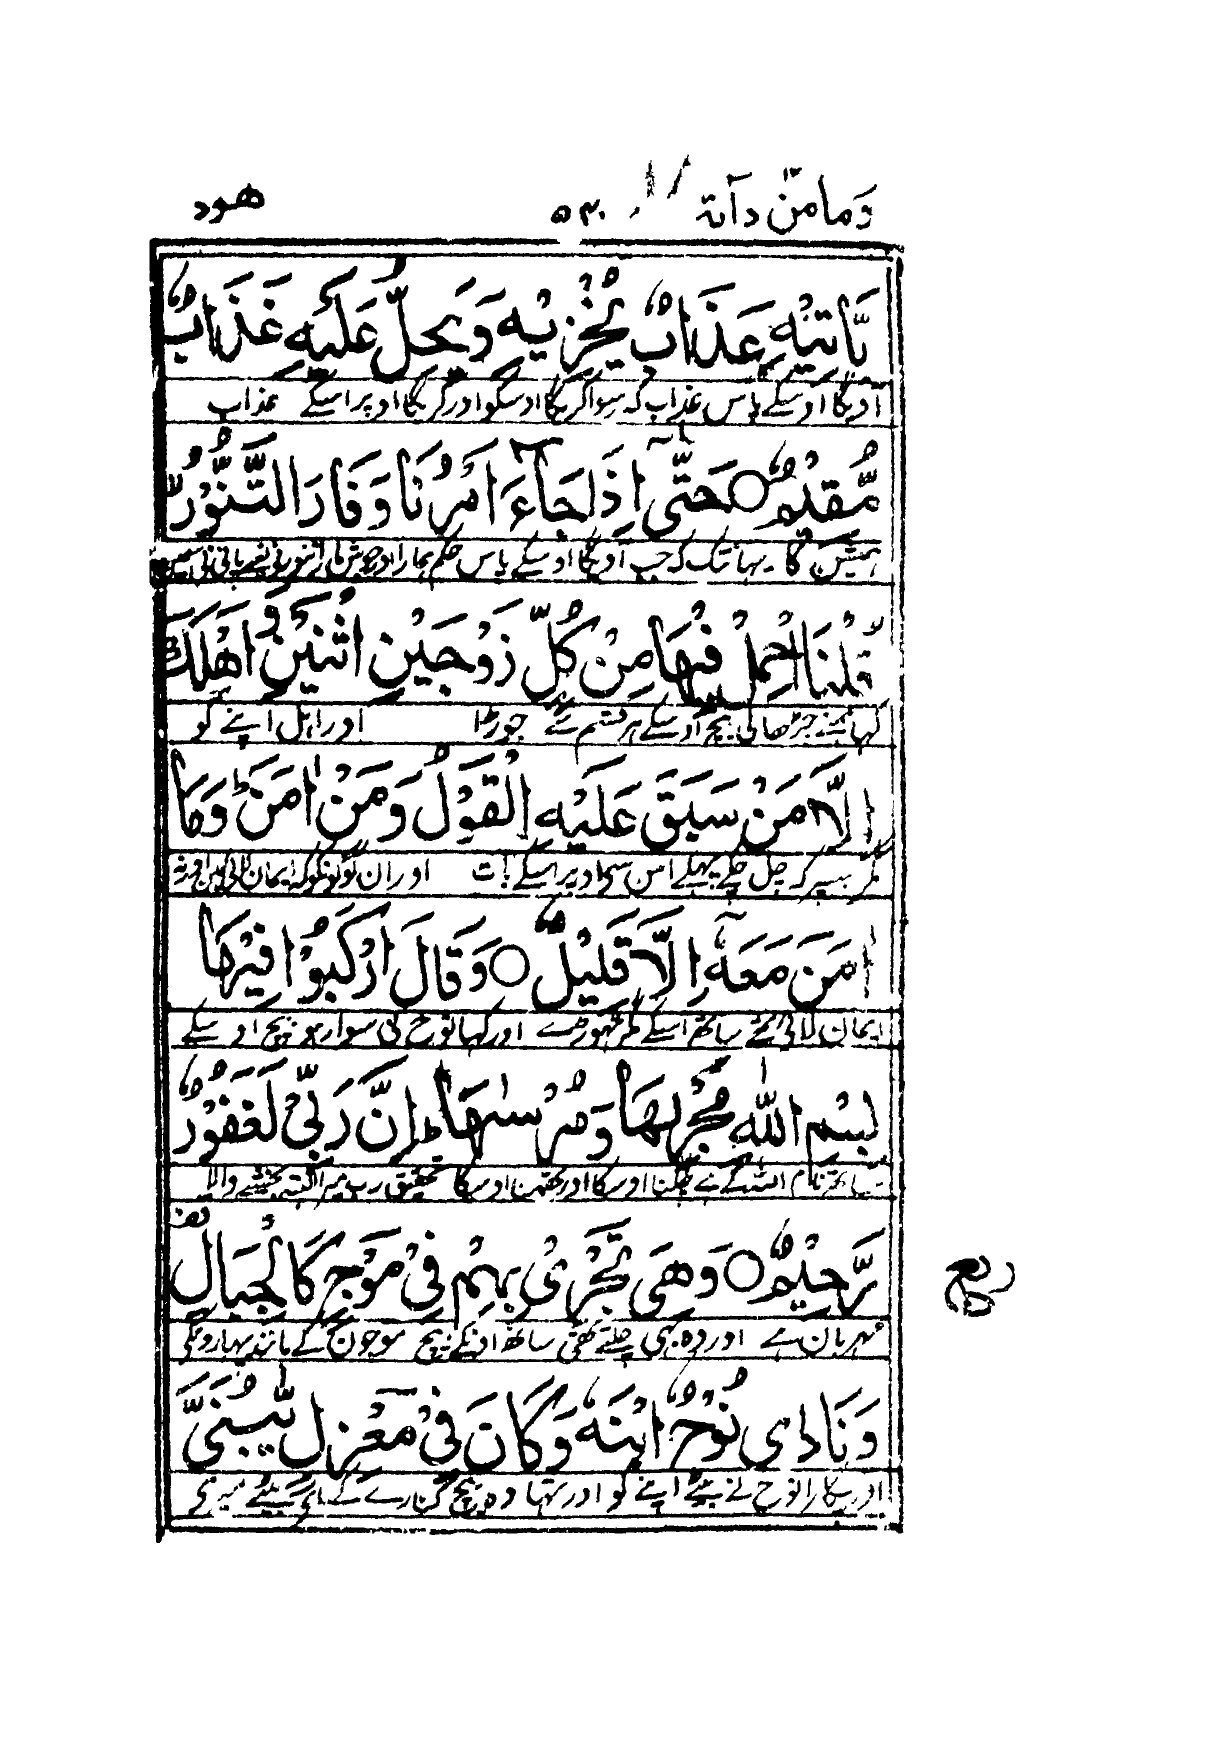 وما من دآبة ۵۳۰ هود
يَّاْتِيْهِ عَذَابٌ يُّخْزِيْهِ وَيَحِلُّ عَلَيْهِ عَذَابٌ
آویگا اوسکے پاس عذاب کہ رسوا کریگا اوسکو اور اوتریگا اوپر اسکے عذاب
مُّقِيْمٌ ○ حَتّٰٓى اِذَا جَآءَ اَمْرُنَا وَفَارَ التَّنُّوْرُ ۙ
ہمیشہ کا ۔ یہانتک کہ جب آویگا اوسکے پاس حکم ہمارا اور جوش مارا تنور نے
قُلْنَا احْمِلْ فِيْهَا مِنْ كُلٍّ زَوْجَيْنِ اثْنَيْنِ وَاَهْلَكَ
کہا ہمنے چڑھالی بیچ اوسکے ہر قسم سے جوڑا اور اہل اپنے کو
اِلَّا مَنْ سَبَقَ عَلَيْهِ الْقَوْلُ وَمَنْ اٰمَنَ ؕ وَمَآ
مگر جسپر کہ چل چکے پہلے اوپر اسکے بات اور ان لوگونکو کہ ایمان لائی ہین اور نہ
اٰمَنَ مَعَهٗٓ اِلَّا قَلِيْلٌ ○ وَقَالَ ارْكَبُوْا فِيْهَا
ایمان لائی تھے ساتھ اسکے مگر تھوڑے اور کہا نوح نی سوار ہو بیچ اوسکے
بِسْمِ اللّٰهِ مَجْرٖىهَا وَمُرْسٰىهَا ؕ اِنَّ رَبِّيْ لَغَفُوْرٌ
ساتھ نام اللہ کے ہے چلنا اوسکا اور تھمنا اوسکا تحقیق رب میرا البتہ بخشنے والا
رَّحِيْمٌ ○ وَهِيَ تَجْرِيْ بِهِمْ فِيْ مَوْجٍ كَالْجِبَالِ
مہربان ہے اور وہ کشتی چلتی تھی ساتھ اونکے بیچ موجون کے مانند پہاڑونکی
وَنَادٰى نُوْحُ ابْنَهٗ وَكَانَ فِيْ مَعْزِلٍ يّٰبُنَيَّ
اور پکارا نوح نے بیٹے اپنے کو اور تھا وہ بیچ کنارے کے اے بیٹے میری